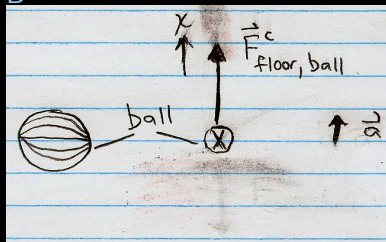 x
F⃗ᶜ floor, ball
ball
x
a⃗